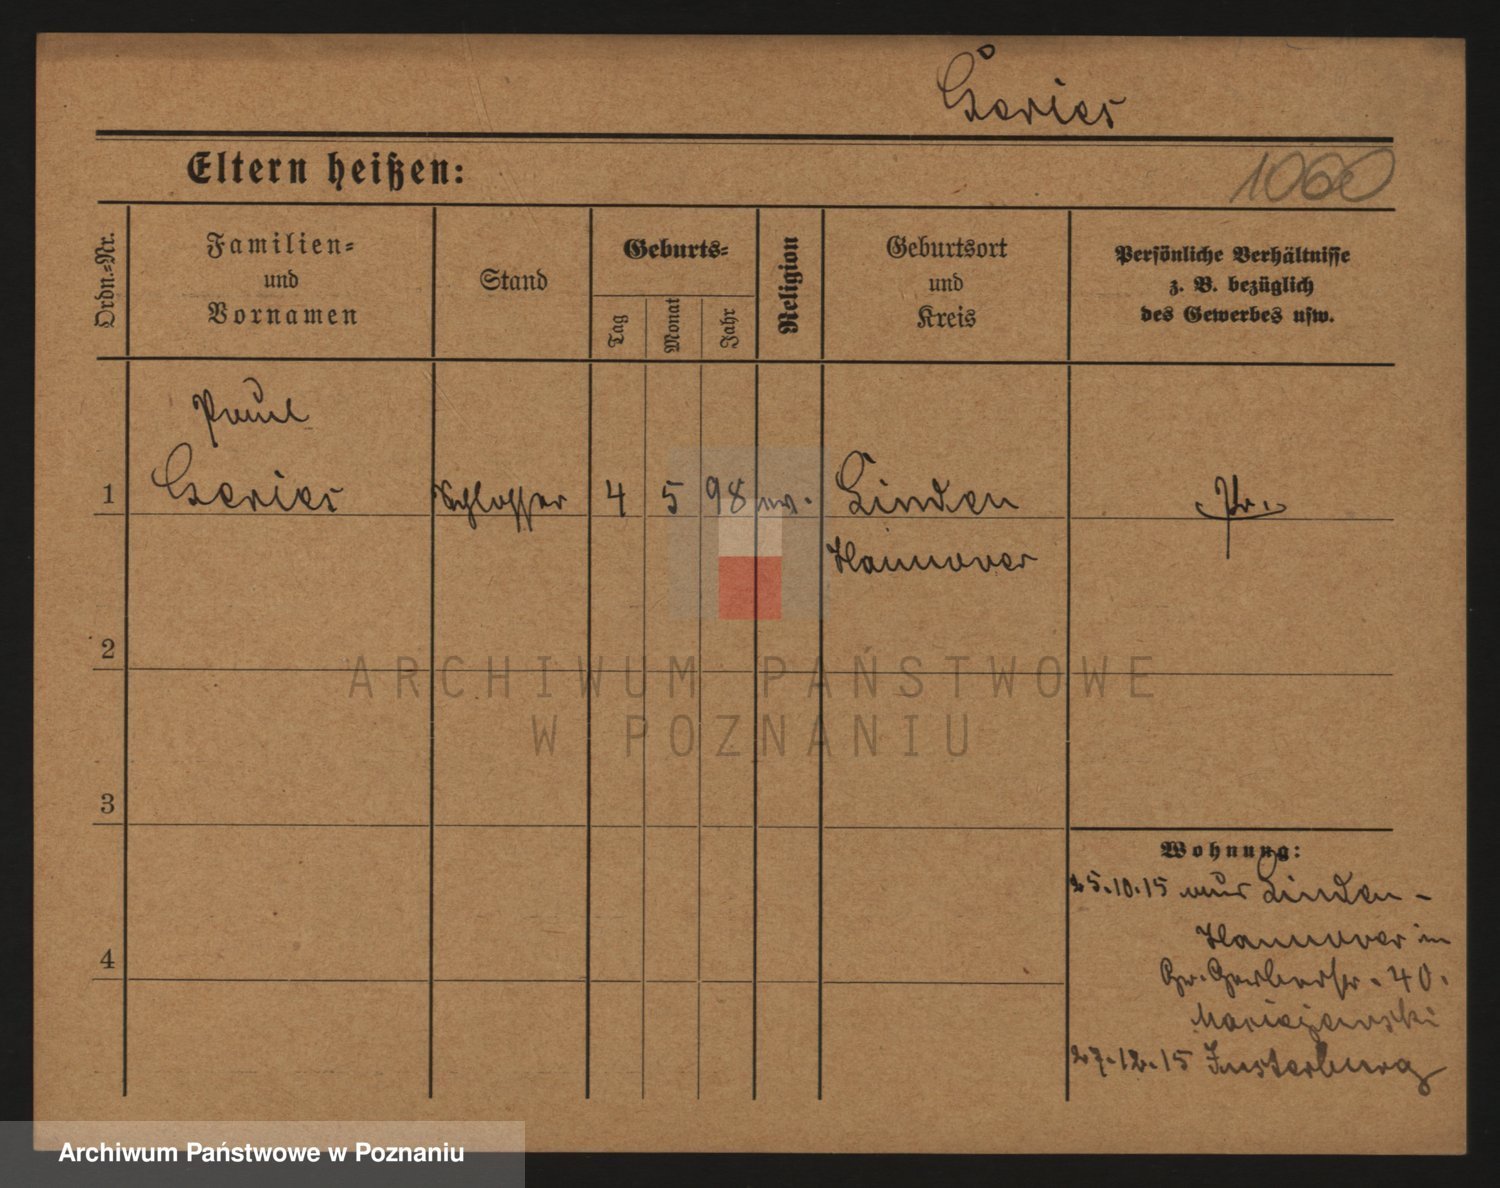 Geries
Eltern heißen:
1060
Ordn.-Nr.
Familien-
und
Vornamen
Stand
Geburts-
Tag
Monat
Jahr
Religion
Geburtsort
und
Kreis
Persönliche Verhältnisse
z. B. bezüglich
des Gewerbes usw.
Paul
1 Geries Schlosser 4 5 98 ev. Linden Pr.
Hannover
2
3
4
Wohnung:
25.10.15 aus Linden-
Hannover in
Gr. Gerberstr. 40.
27.12.15 Insterburg
ARCHIWUM PAŃSTWOWE
W POZNANIU
Archiwum Państwowe w Poznaniu